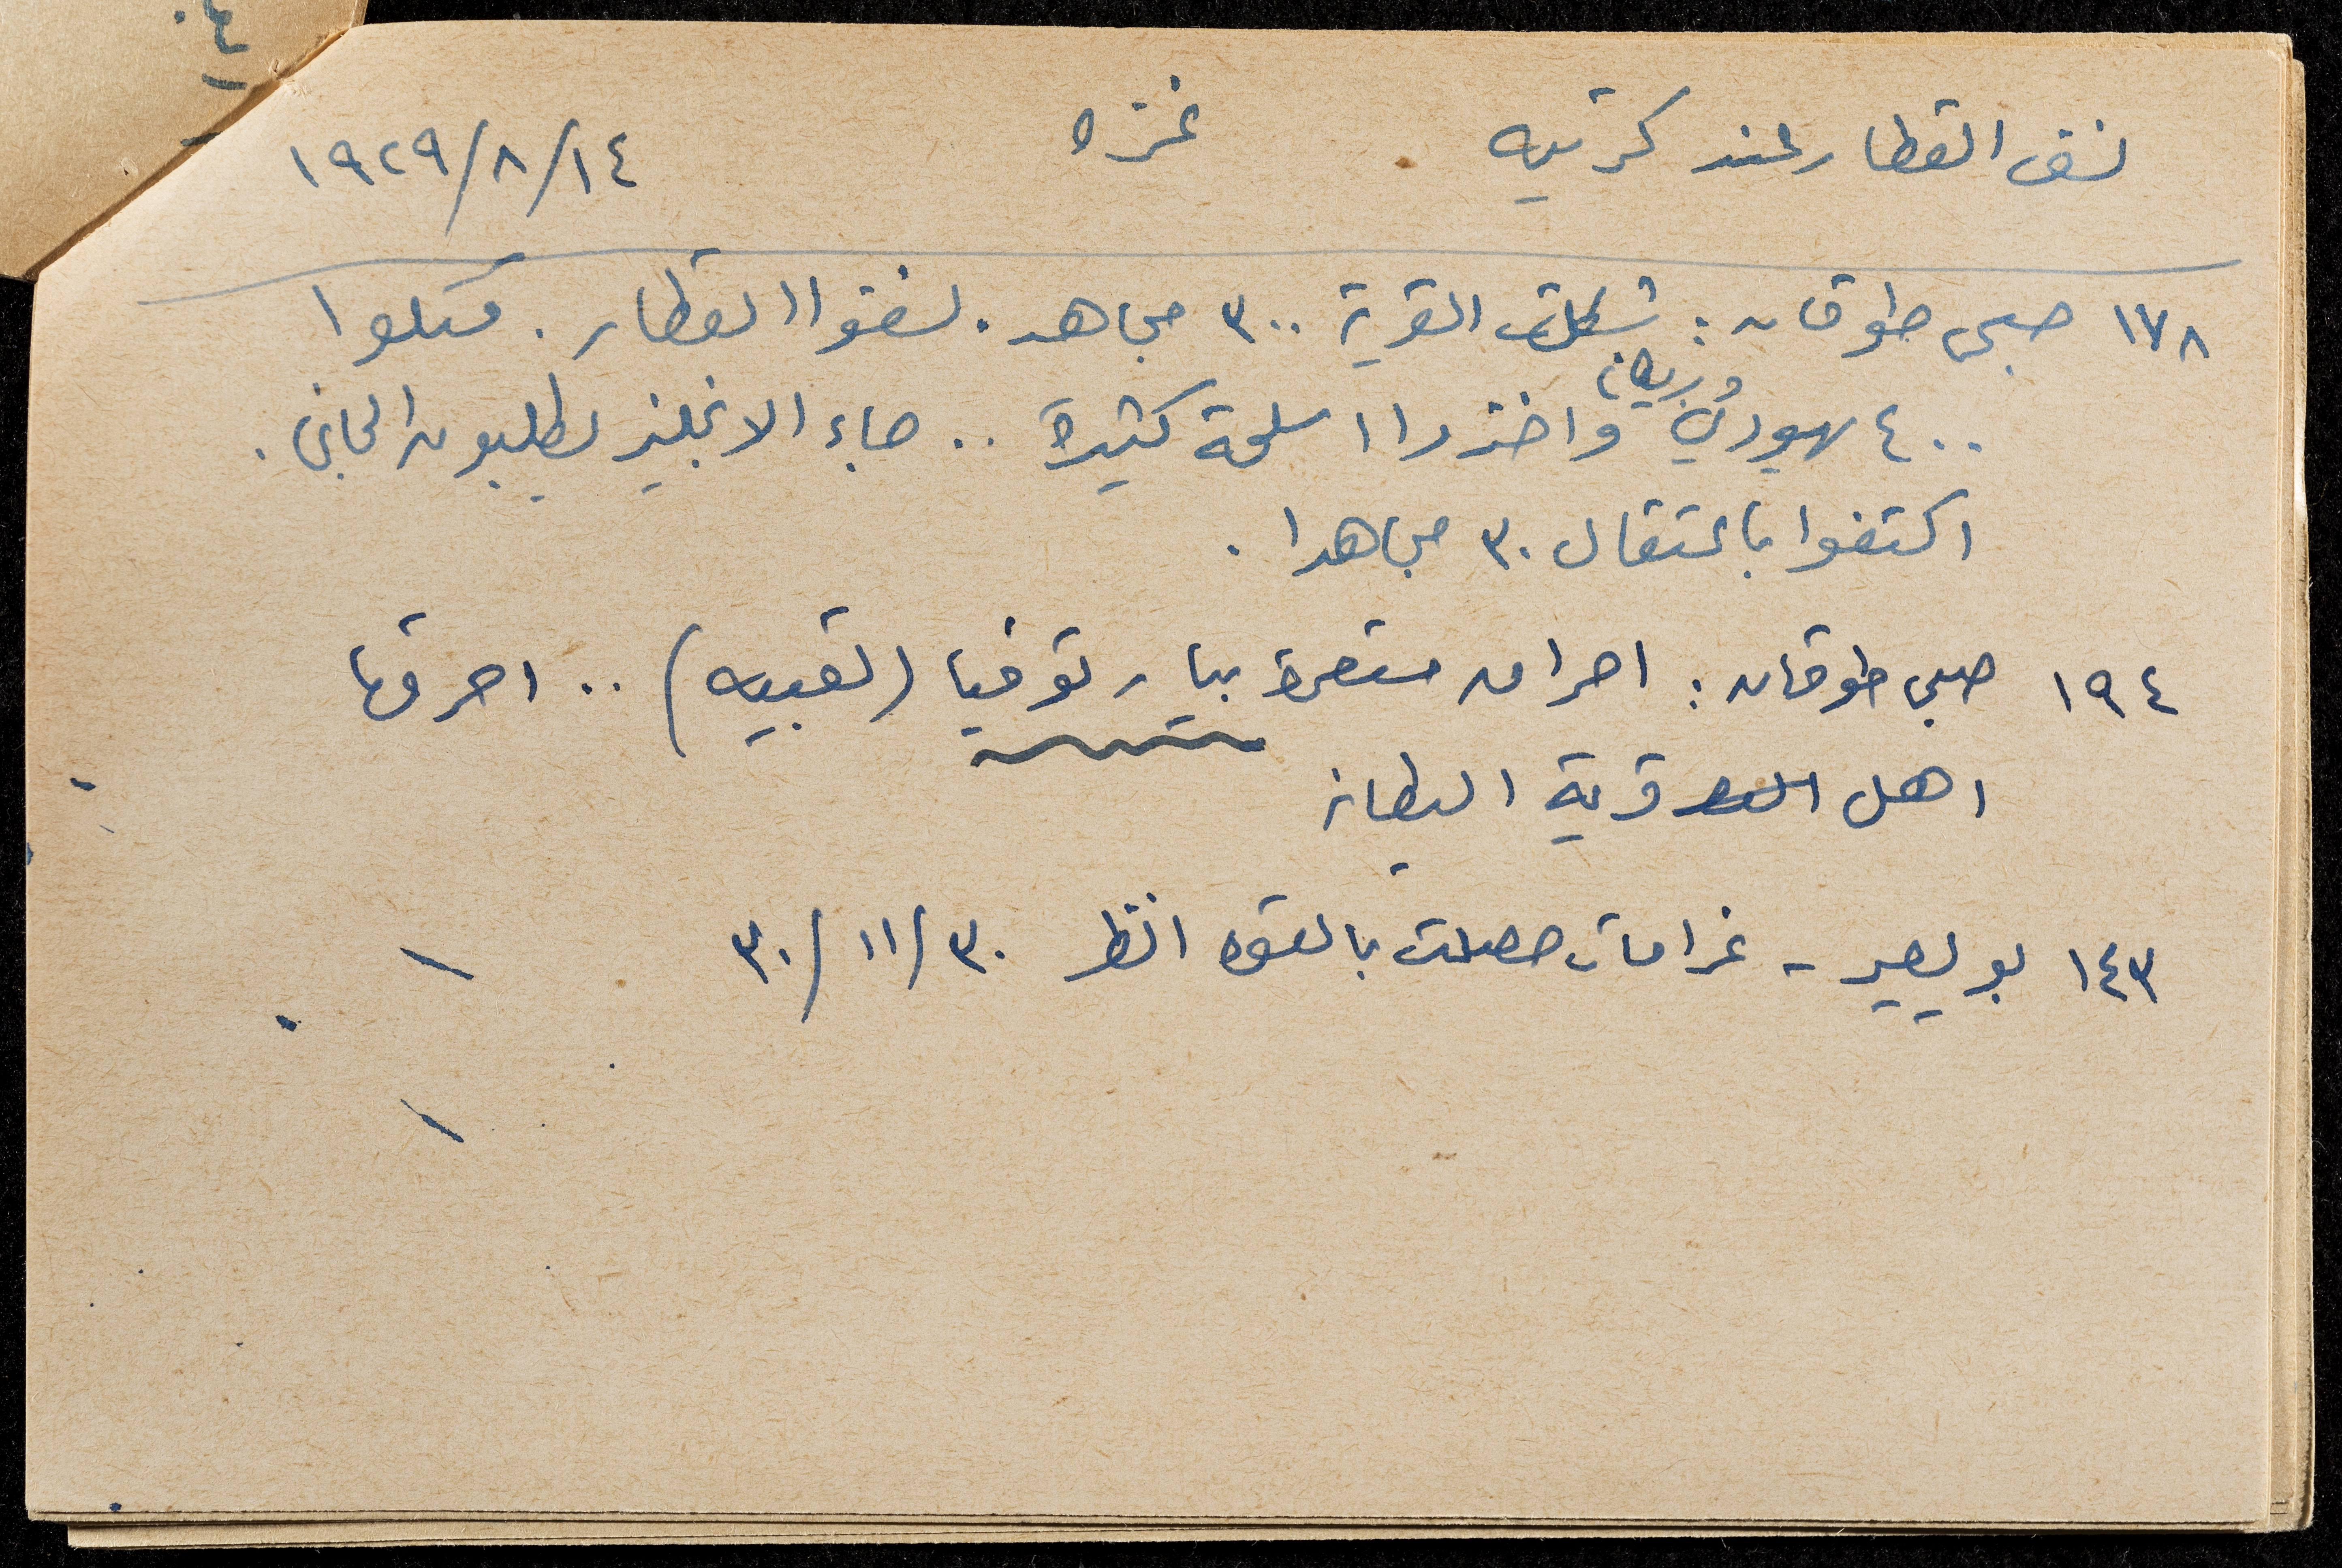 نسف القطار عند كرتيه غزه ١٤/٨/١٩٢٩
١٧٨ صبحي طوقان: شكلت القرية ٣٠٠ مجاهد. نسفوا القطار. قتلوا
٤٠٠ يهودي وبريطاني واخذوا اسلحة كثيرة .. جاء الانجليز يطلبون الجاني.
اكتفوا باعتقال ٣٠ مجاهدا.
١٩٤ صبحي طوقان: احراق مستعمرة بيار توفيا (القبيبه) .. احرقها
اهل قرية البطاني
١٤٣ بويصير - غرامات حصلت بالقوه انظر ٣٠/١١/٣٠